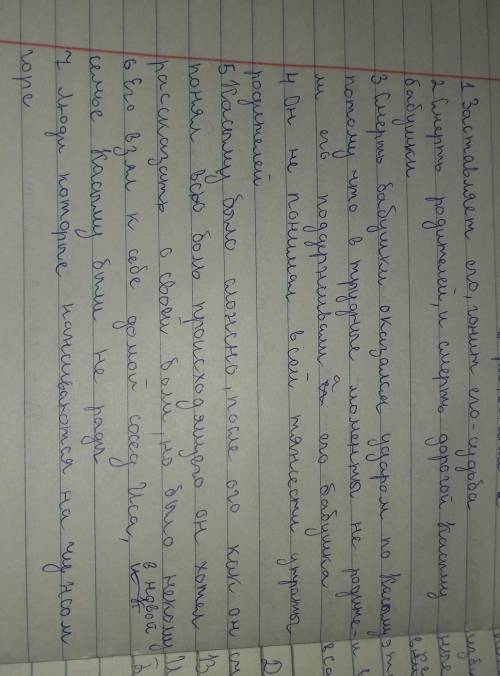 1 Заставляет его, гонит его-судьба
2 Смерть родителей, и смерть дорогой Касыму
бабушки
3 Смерть бабушки оказался ударом по Касыму
потому что в трудные моменты не родите-
ли его поддерживали а его бабушка
4 Он не понимал всей тяжести утраты
родителей
5 Касыму было сложно, после ого как он
понял всю боль происходящего он хотел
рассказать о своей боли, но было некому
6 Его взял к себе домой сосед Иса, в новой
семье Касыму были не рады
7 Люди которые наживаются на чужом
горе